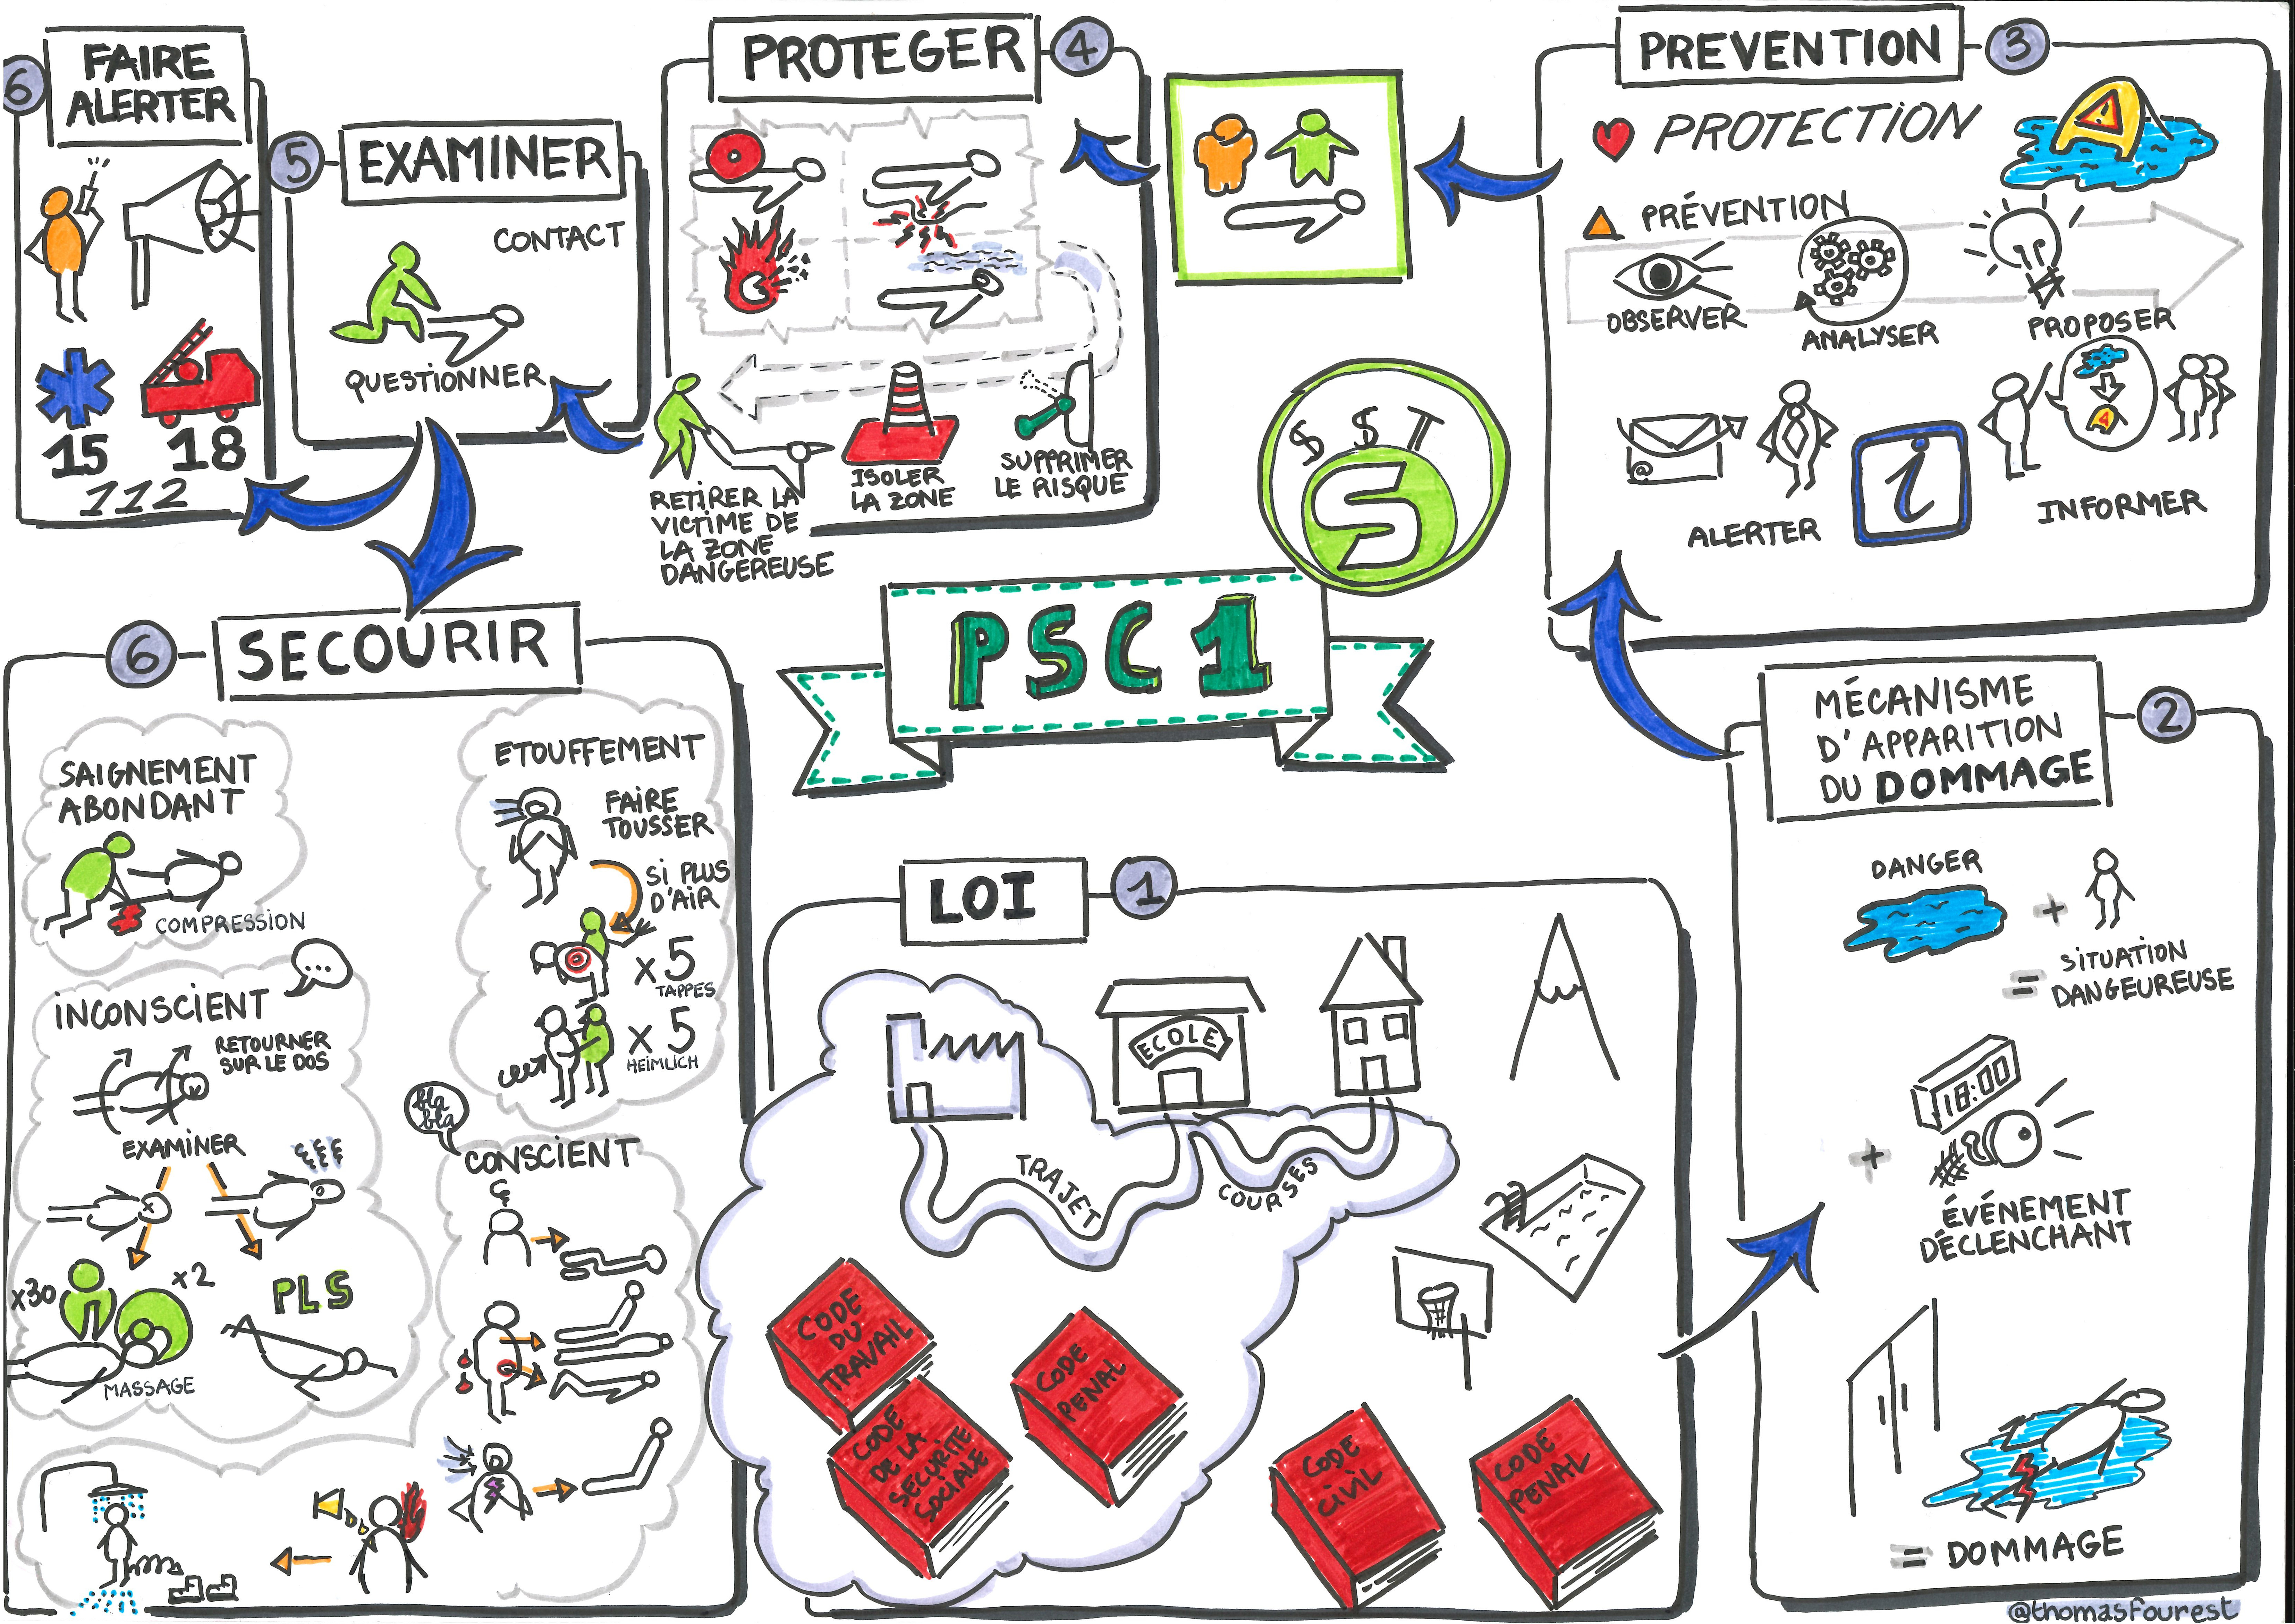 6
FAIRE
ALERTER
15
18
112
5
EXAMINER
CONTACT
QUESTIONNER
PROTEGER
4
RETIRER LA
VICTIME DE
LA ZONE
DANGEREUSE
ISOLER
LA ZONE
SUPPRIMER
LE RISQUE
PREVENTION
3
PROTECTION
PRÉVENTION
OBSERVER
ANALYSER
PROPOSER
@
ALERTER
i
INFORMER
S S T
S
PSC 1
6
SECOURIR
SAIGNEMENT
ABONDANT
COMPRESSION
ETOUFFEMENT
FAIRE
TOUSSER
SI PLUS
D'AIR
x 5
TAPPES
x 5
HEIMLICH
...
INCONSCIENT
RETOURNER
SUR LE DOS
EXAMINER
x30
x2
MASSAGE
PLS
bla
bla
CONSCIENT
LOI
1
ECOLE
TRAJET
COURSES
CODE
DU
TRAVAIL
CODE
DE LA
SECURITE
SOCIALE
CODE
PENAL
CODE
CIVIL
CODE
PENAL
MÉCANISME
D'APPARITION
DU DOMMAGE
2
DANGER
+
= SITUATION
DANGEUREUSE
18:00
+
ÉVÉNEMENT
DÉCLENCHANT
= DOMMAGE
@thomasfourest